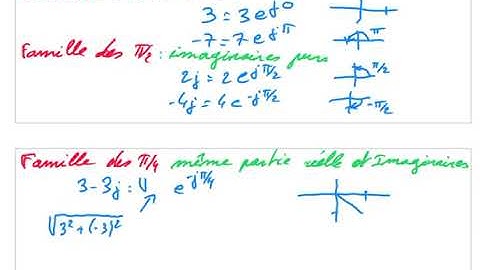 3 = 3 e^j0
-7 = 7 e^jπ π
Famille des π/2 : imaginaires purs
2j = 2 e^jπ/2 π/2
-4j = 4 e^-jπ/2 -π/2
Famille des π/4 même partie réelle et Imaginaires
3-3j = √ e^-jπ/4
√3²+(-3)²